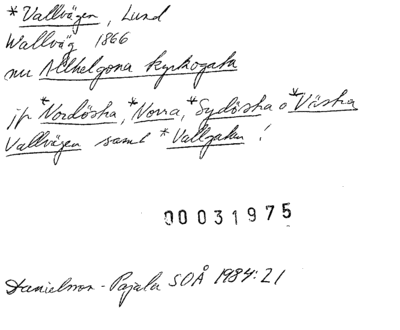 *Vallvägen, Lund
Wallväg 1866
nu Allhelgona kyrkogata
jfr *Nordöstra, *Norra, *Sydöstra o *Västra
Vallvägen samt *Vallgatan !
00031975
Danielsson - Pajala SOÅ 1984:21